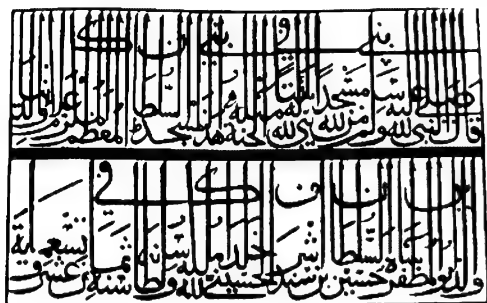 قال النبي صلى الله عليه وسلم من بنى لله مسجدا بنى الله له بيتا مثله في الجنة بنى هذا المسجد السلطان المعظم المكرم علاء الدنيا
والدين ابو المظفر حسين شاه السلطان بن سيد اشرف الحسيني خلد الله ملكه وسلطانه في سنة ثمان عشر وتسعماية